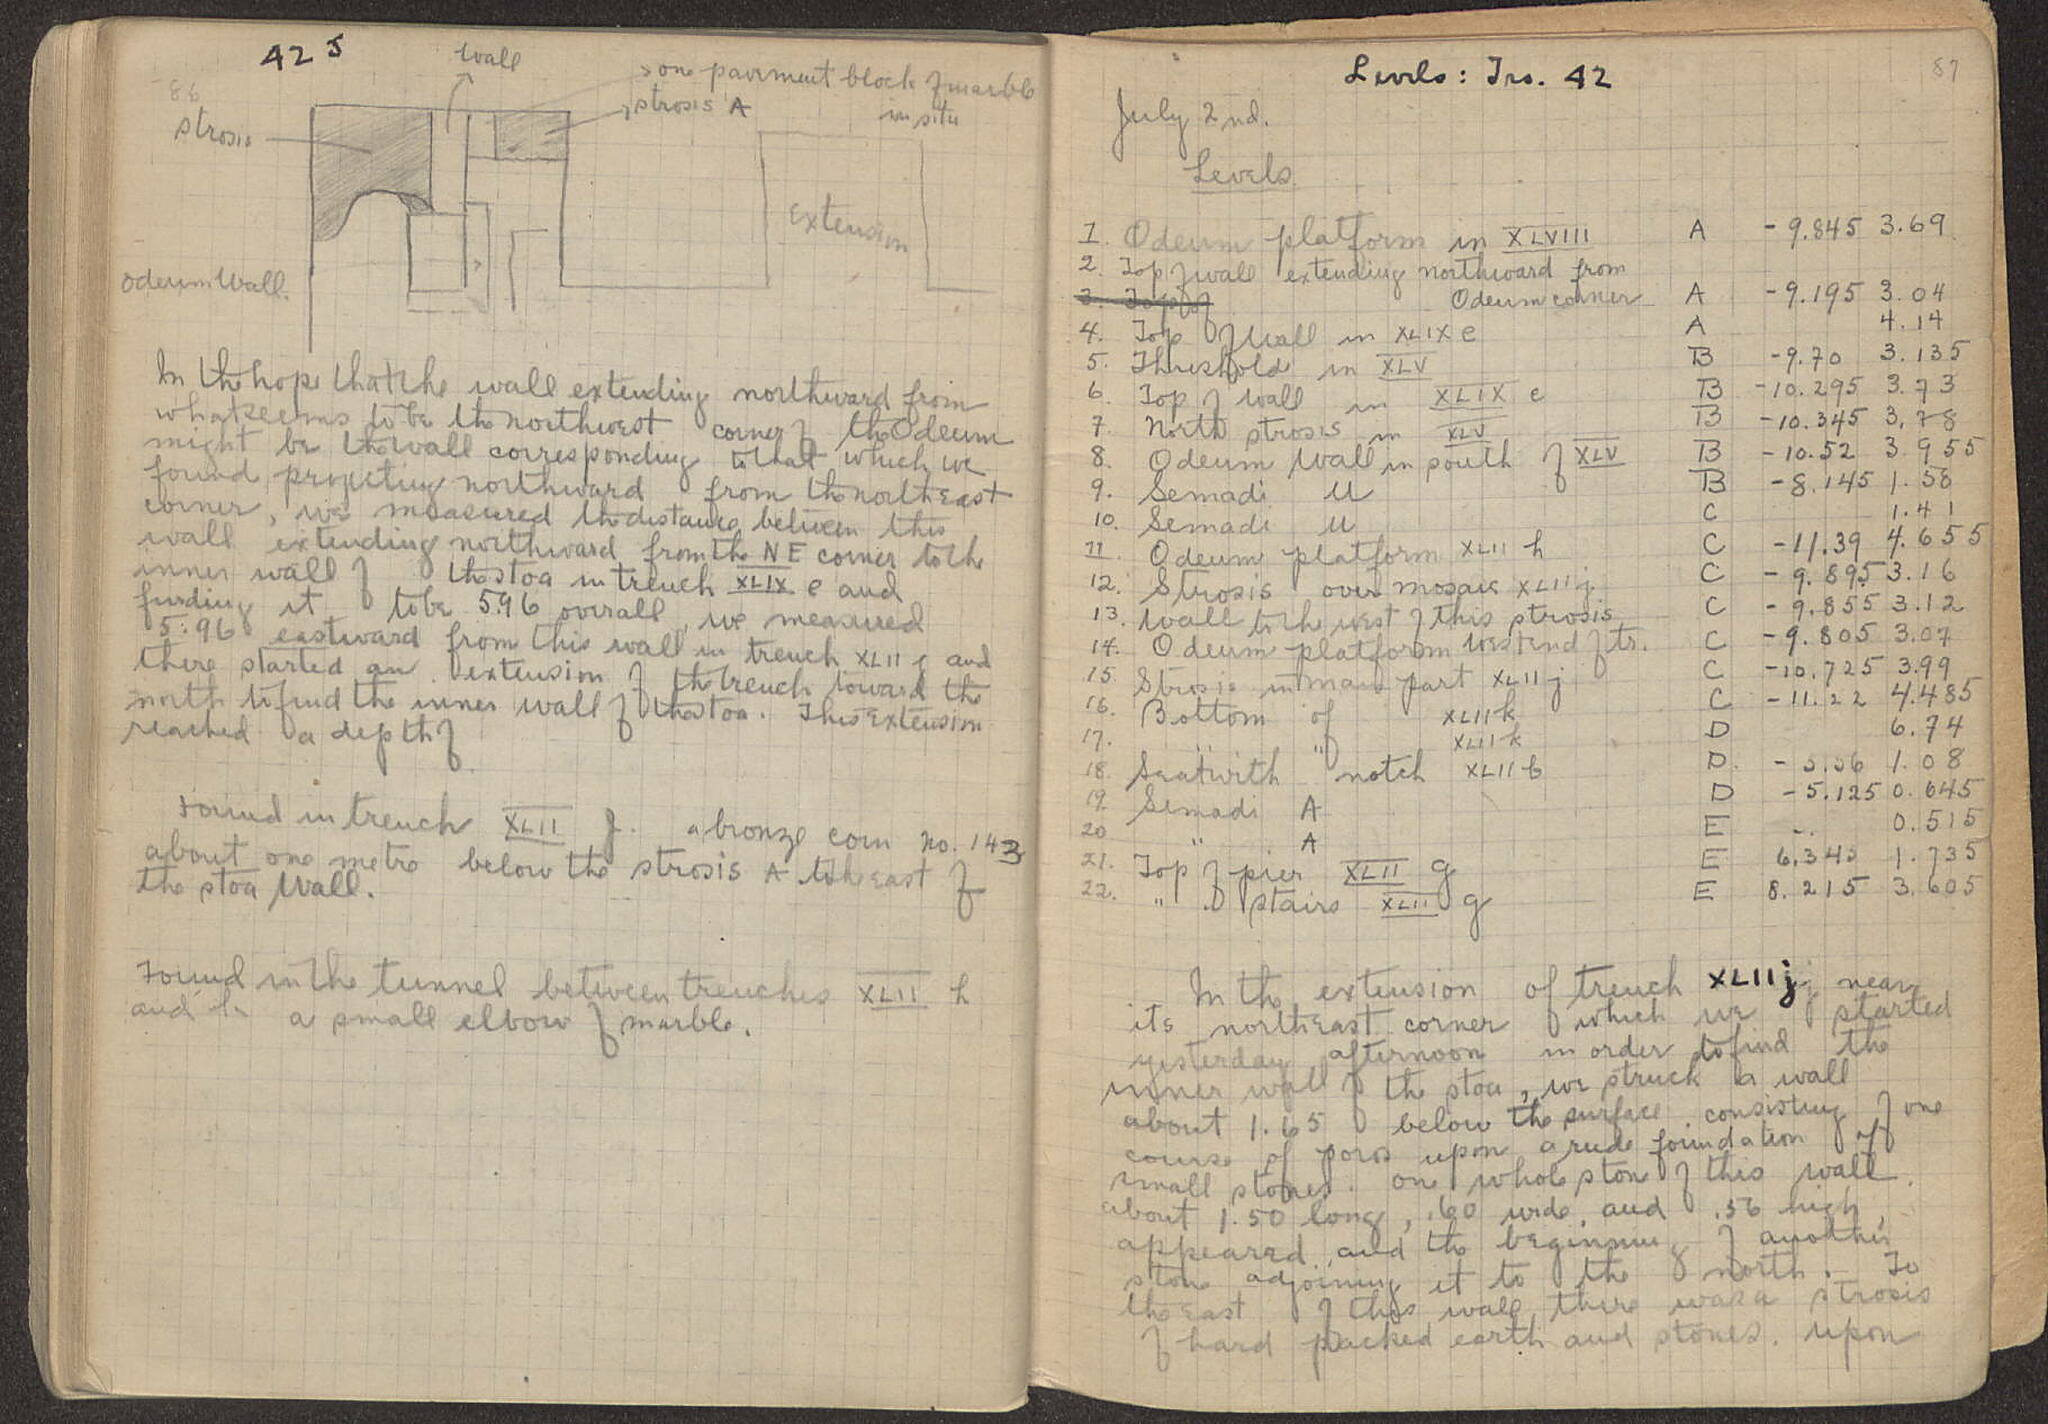 42 J
86
wall
one pavement block of marble
in situ
strosis A
strosis
Extension
Odeum Wall.
In the hope that the wall extending northward from
what seems to be the northwest corner of the Odeum
might be the wall corresponding to that which we
found projecting northward from the northeast
corner, we measured the distance between this
wall extending northward from the NE corner to the
inner wall of the stoa in trench XLIX e and
finding it to be 5.96 overall, we measured
5.96 eastward from this wall in trench XLII j and
there started an extension of the trench toward the
north to find the inner wall of the stoa. This extension
reached a depth of
Found in trench XLII j. a bronze coin no. 143
about one metre below the strosis A to the east of
the stoa wall.
Found in the tunnel between trenches XLII h
and k a small elbow of marble.
87
Levels: Trs. 42
July 2nd.
Levels
1. Odeum platform in XLVIII A -9.845 3.69
2. Top of wall extending northward from
3. Top of Odeum corner A -9.195 3.04
4. Top of wall in XLIX e A 4.14
5. Threshold in XLV B -9.70 3.135
6. Top of wall in XLIX e B -10.295 3.73
7. North strosis in XLV B -10.345 3.78
8. Odeum Wall in south of XLV B -10.52 3.955
9. Semadi U B -8.145 1.58
10. Semadi U C 1.41
11. Odeum platform XLII h C -11.39 4.655
12. Strosis over mosaic XLII j C -9.895 3.16
13. Wall to the west of this strosis C -9.855 3.12
14. Odeum platform West end of tr. C -9.805 3.07
15. Strosis in main part XLII j C -10.725 3.99
16. Bottom of XLII k C -11.22 4.485
17. " " XLII k D 6.74
18. Seat with notch XLII b D. 1.08
19. Semadi A D -5.125 0.645
20 " A E 0.515
21. Top of pier XLII g E 6.345 1.735
22. " of stairs XLII g E 8.215 3.605
In the extension of trench XLII j near
its northeast corner which we started
yesterday afternoon in order to find the
inner wall of the stoa, we struck a wall
about 1.65 below the surface consisting of one
course of poros upon a rude foundation of
small stones. One whole stone of this wall
about 1.50 long, .60 wide, and .56 high,
appeared, and the beginning of another
stone adjoining it to the north. To
the east of this wall there was a strosis
of hard packed earth and stones. Upon